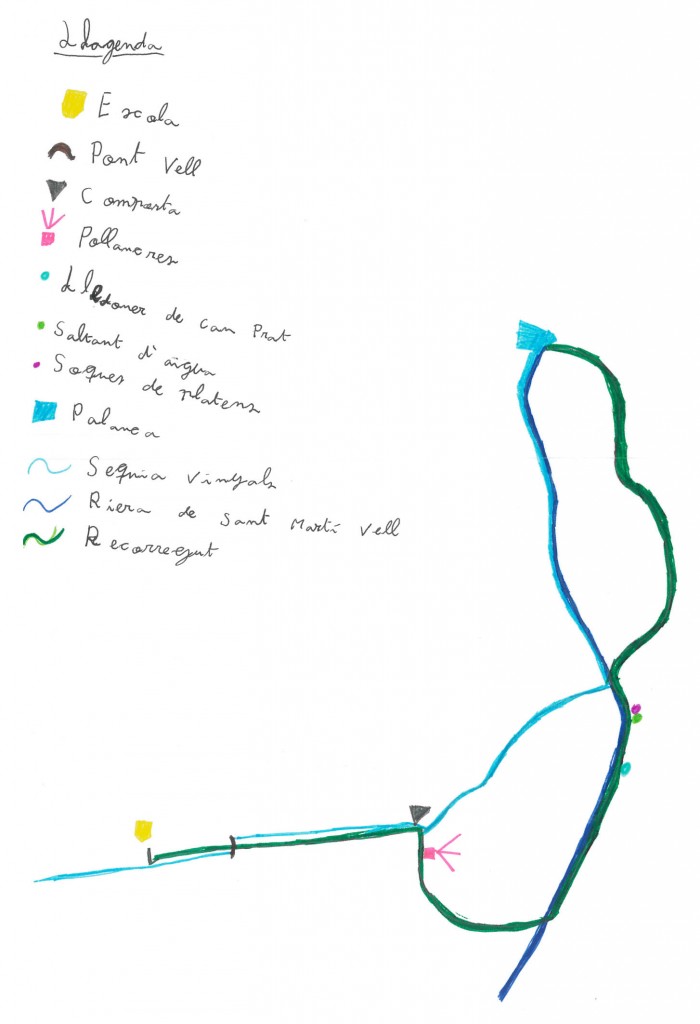 Llagenda
Escola
Pont Vell
Comporta
Pollancres
Lledoner de Can Prat
Saltant d'aigua
Soques de platens
Palanca
Sequia Vinyals
Riera de Sant Martí Vell
Recorregut